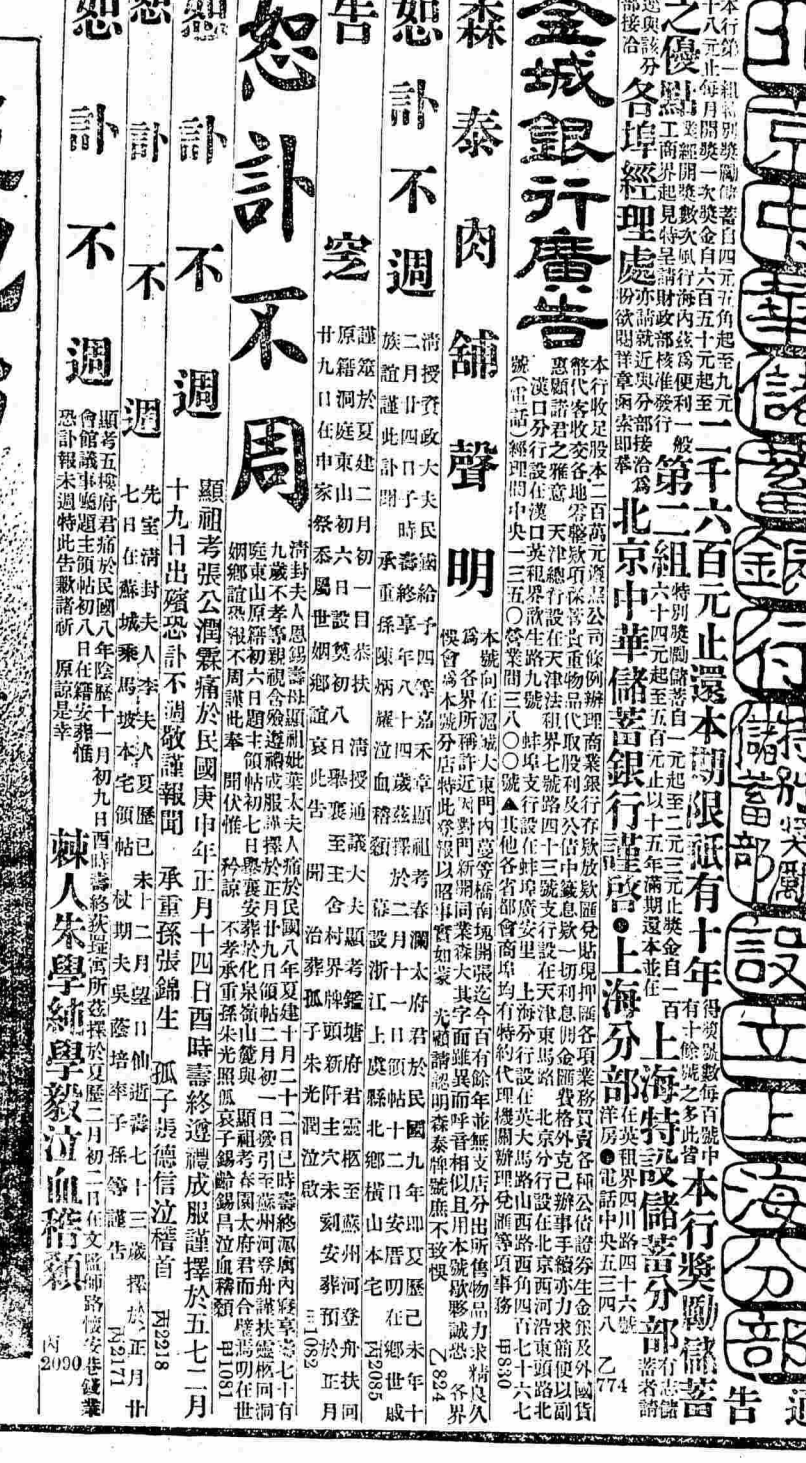 北京中華儲蓄銀行特別獎勵儲蓄部設立上海分部
通告
本行獎勵儲蓄
二千六百元止還本期限祗有十年
得獎號數每百號中
有十餘號之多此皆
第二組
特別獎勵儲蓄自一元起至二元三元止獎金自一百
六十四元起至五百元止以十五年滿期還本並在
上海特設儲蓄分部
之優點
各埠經理處
亦請就近與分部接洽為
盼欲閱詳章函索即奉
北京中華儲蓄銀行謹啓
上海分部
在英租界四川路四十六號
洋房電話中央五三四八
乙774
金城銀行廣告
本行收足股本二百萬元遵照公司條例辦理商業銀行存欵放欵匯兌貼現押匯各項業務買賣各種公債證券生金銀及外國貨
幣代客收交各地零整欵項保管貴重物品代取股利及公債中籤息欵一切利息佣金匯費格外克己辦事手續亦力求簡便以副
惠顧諸君之雅意 天津總行設在天津法租界七號路四十三號支行設在天津東馬路 北京分行設在北京西河沿東頭路北
漢口分行設在漢口英租界歆生路九號 蚌埠支行設在蚌埠廣安里 上海分行設在英大馬路山西路西角四百七十六七
號(電話)經理間中央一三五〇營業間三八〇〇號▲其他各省都會商埠均有特約代理機關辦理兌匯等項事務
甲830
森泰肉舖聲明
本號向在滬城大東門內蔓笠橋南堍開張迄今百有餘年並無支店分出所售物品力求精良久
為 各界所稱許近因對門新開同業森大其字面雖異而呼音相似且用本號歇夥誠恐 各界
悞會為本號分店特此登報以昭事實如蒙 光顧請認明森泰牌號庶不致悞
乙824
恕訃不週
清授資政大夫民國給予四等嘉禾章顯祖考春瀾太府君於民國九年即夏歷己未年十
二月廿四日子時壽終享年八十四歲茲擇於二月十一日領帖十二日安厝叨在鄉世戚
族誼謹此訃聞 承重孫陳炳耀泣血稽顙 幕設浙江上虞縣北鄉橫山本宅
丙2085
告窆
謹筮於夏建二月初一日恭扶 清授通議大夫顯考鑑塘府君靈柩至蘇州河登舟扶回
原籍洞庭東山初六日設奠初八日舉襄至王舍村界牌頭新阡主穴未刻安葬預於正月
廿九日在申家祭忝屬世姻鄉誼哀此告 聞 治葬孤子朱光潤泣啟
甲1082
恕訃不周
清封夫人恩錫壽母顯祖妣葉太夫人痛於民國八年夏建十月二十二日巳時壽終滬廣內寢享壽七十有
九歲不孝等親視含殮遵禮成服謹擇於正月廿九日領帖二月初一日發引至蘇州河登舟謹扶靈柩回洞
庭東山原籍初六日題主領帖初七日舉襄安葬於化泉嶺山麓與 顯祖考春園太府君而合璧焉叨在世
姻鄉誼恐報不周謹此奉 聞伏惟 矜諒 不孝承重孫朱光照孤哀子錫齡錫昌泣血稽顙
甲1081
恕訃不週
顯祖考張公潤霖痛於民國庚申年正月十四日酉時壽終遵禮成服謹擇於五七二月
十九日出殯恐訃不週敬謹報聞 承重孫張錦生 孤子張德信泣稽首
丙2218
恕訃不週
先室清封夫人李夫人夏歷已未十二月望日仙逝壽七十三歲擇於正月廿
七日在蘇城乘馬坡本宅領帖 杖期夫吳蔭培率子孫等謹告
丙2171
恕訃不週
顯考五樓府君痛於民國八年陰歷十一月初九日酉時壽終荻瑆寓所茲擇於夏歷二月初二日在文監師路懷安巷錢業
會館議事廳題主領帖初八日在籍安葬惟
恐訃報未週特此告歉諸祈 原諒是幸
棘人朱學純學毅泣血稽顙
丙2090